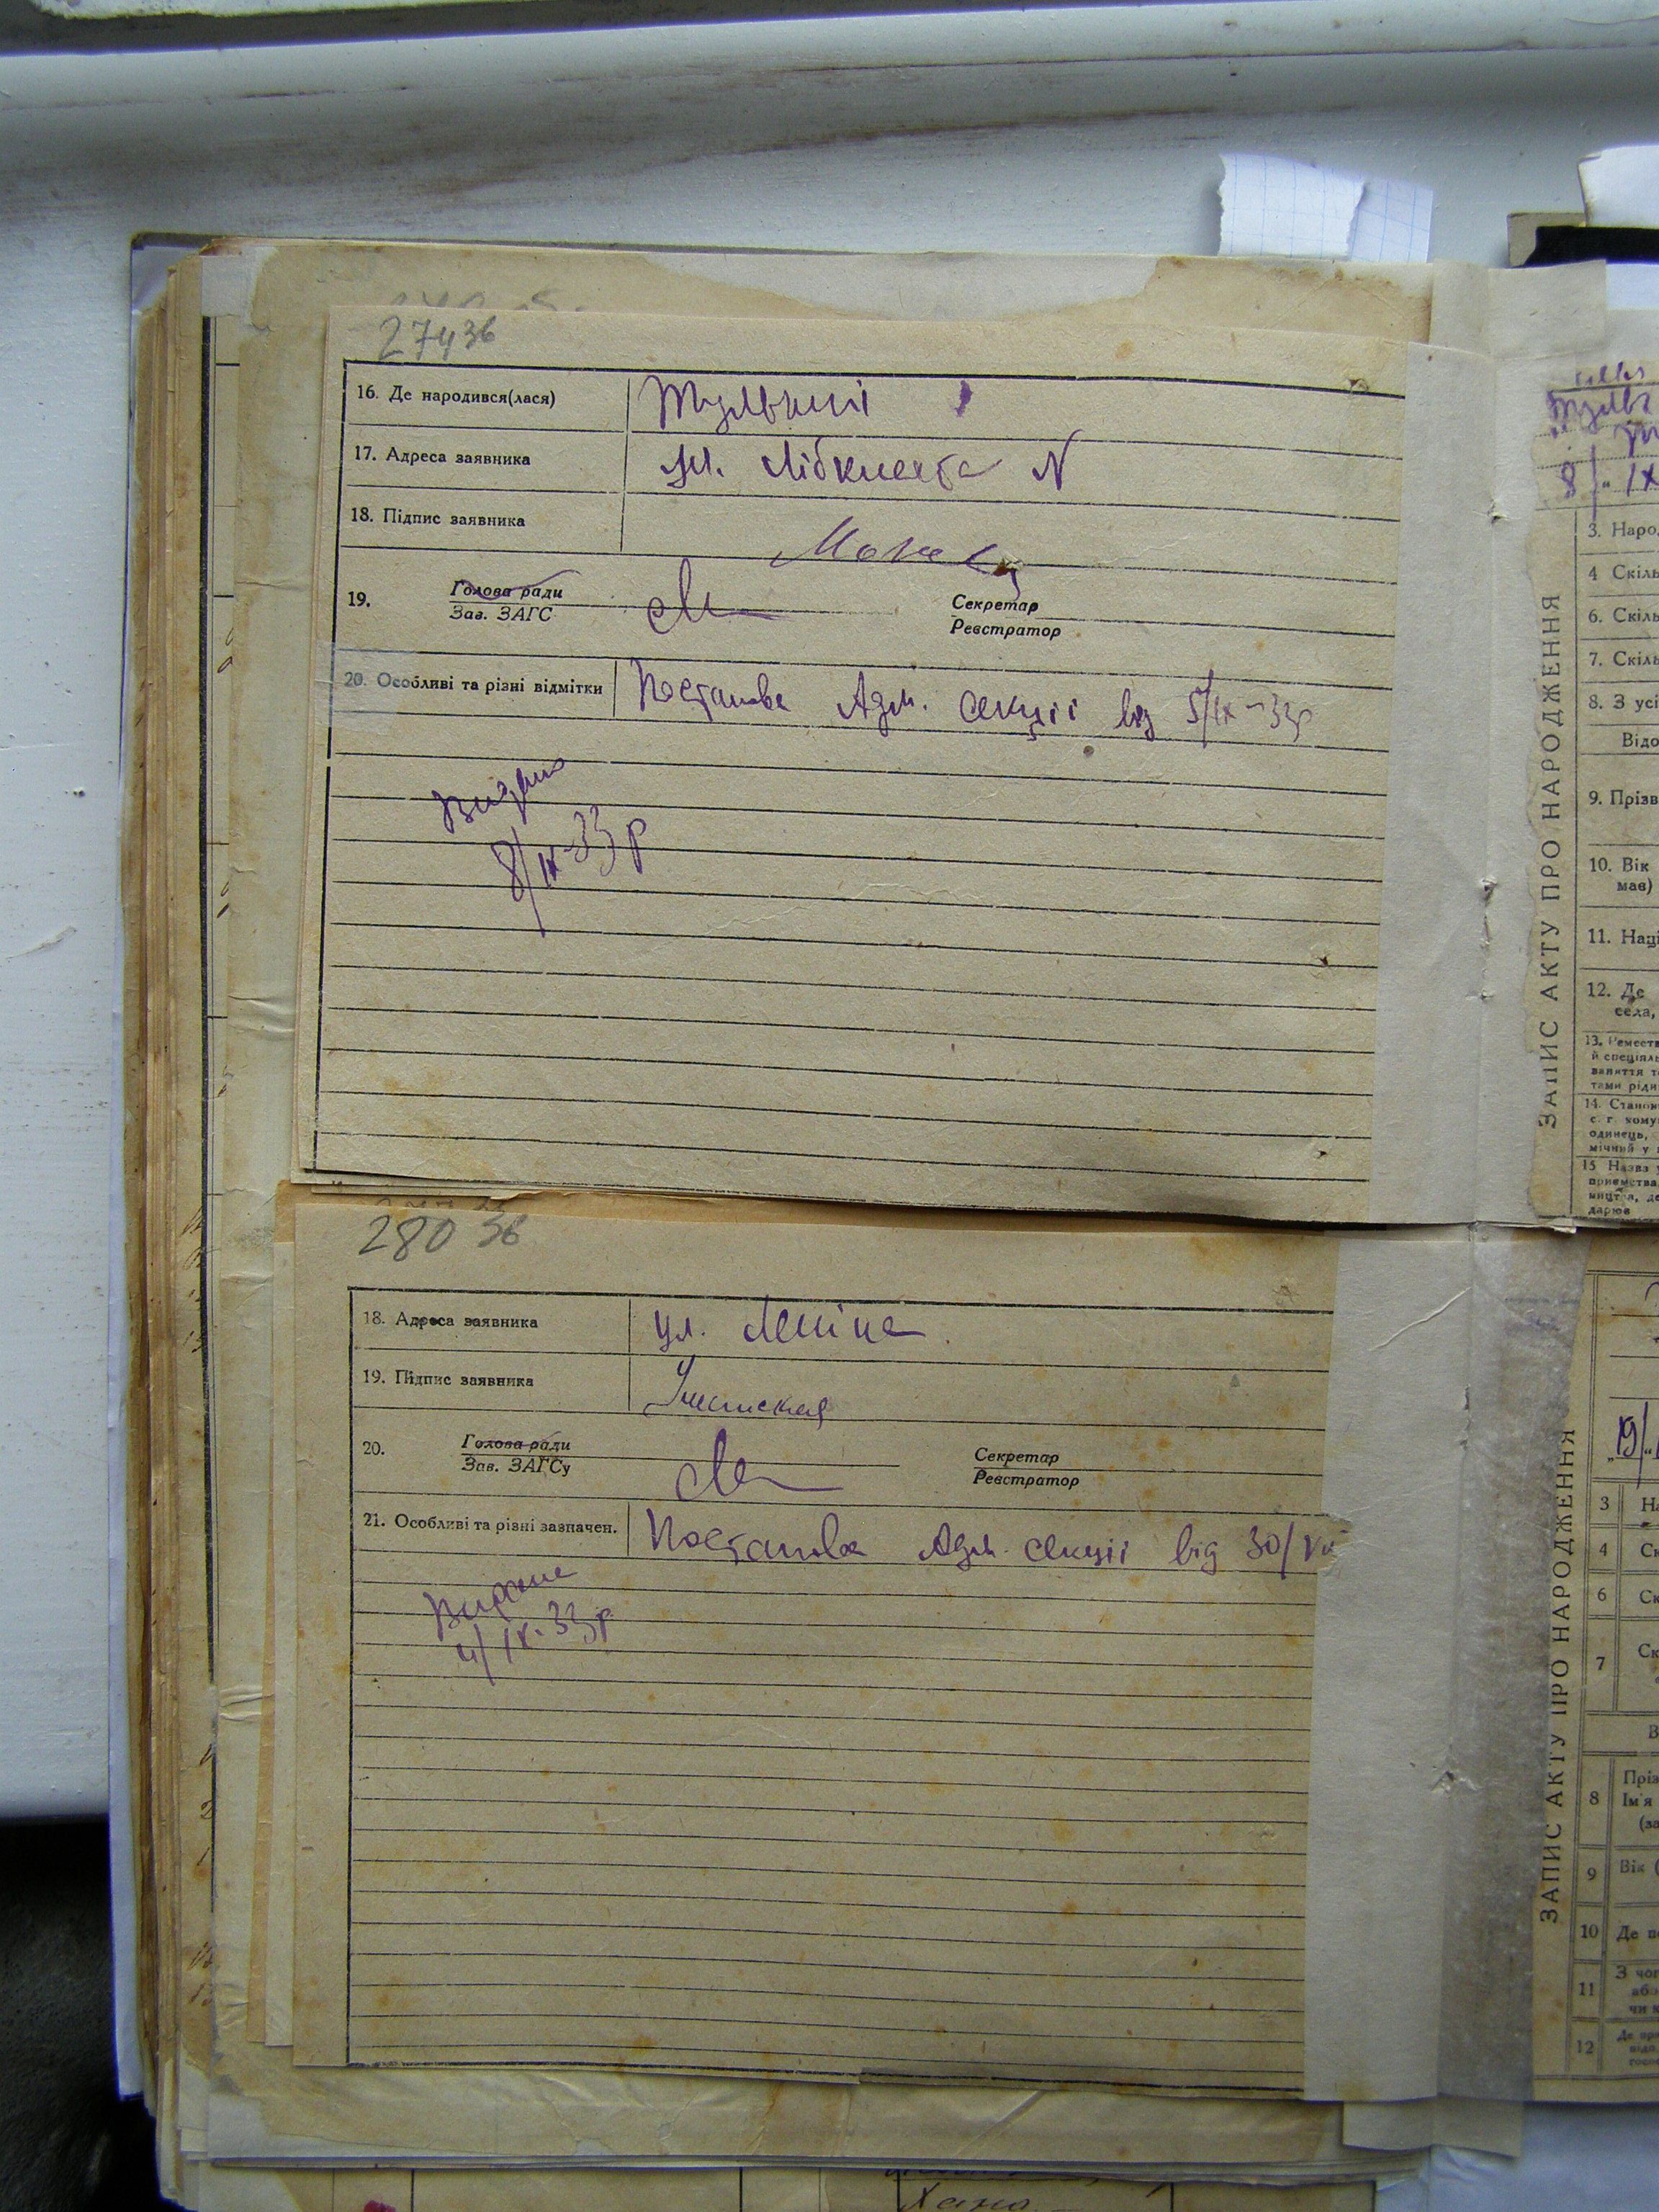 274 зв
16. Де народився(лася) Тульчині
17. Адреса заявника ул. Лібкнехта N
18. Підпис заявника
19. Голова ради Секретар
Зав. ЗАГС Реєстратор
20. Особливі та різні відмітки Постанова Адм. секції від 5/IX-33р
Видано
8/IX-33 р
280 зв
18. Адреса заявника ул. Леніна
19. Підпис заявника
20. Голова ради Секретар
Зав. ЗАГСу Реєстратор
21. Особливі та різні зазначен. Постанова Адм. секції від 30/
Видано
4/IX-33р
ЗАПИС АКТУ ПРО НАРОДЖЕННЯ
8/ IX
3. Наро
4 Скіль
6. Скіль
7. Скіль
8. З усі
Відо
9. Прізв
10. Вік
має)
11. Наці
12. Де
села,
13. Реместв
й спеціяль
заняття т
тами рідн
14. Станов
с. г. кому
одинець,
мічний у
15 Назва
приємства
дарюв
ЗАПИС АКТУ ПРО НАРОДЖЕННЯ
19/
3 На
4 Ск
6 Ск
7 Ск
В
8 Пріз
Ім'я
(за
9 Вік (
10 Де п
11 З чог
або
чи к
12 Де пр
Хана